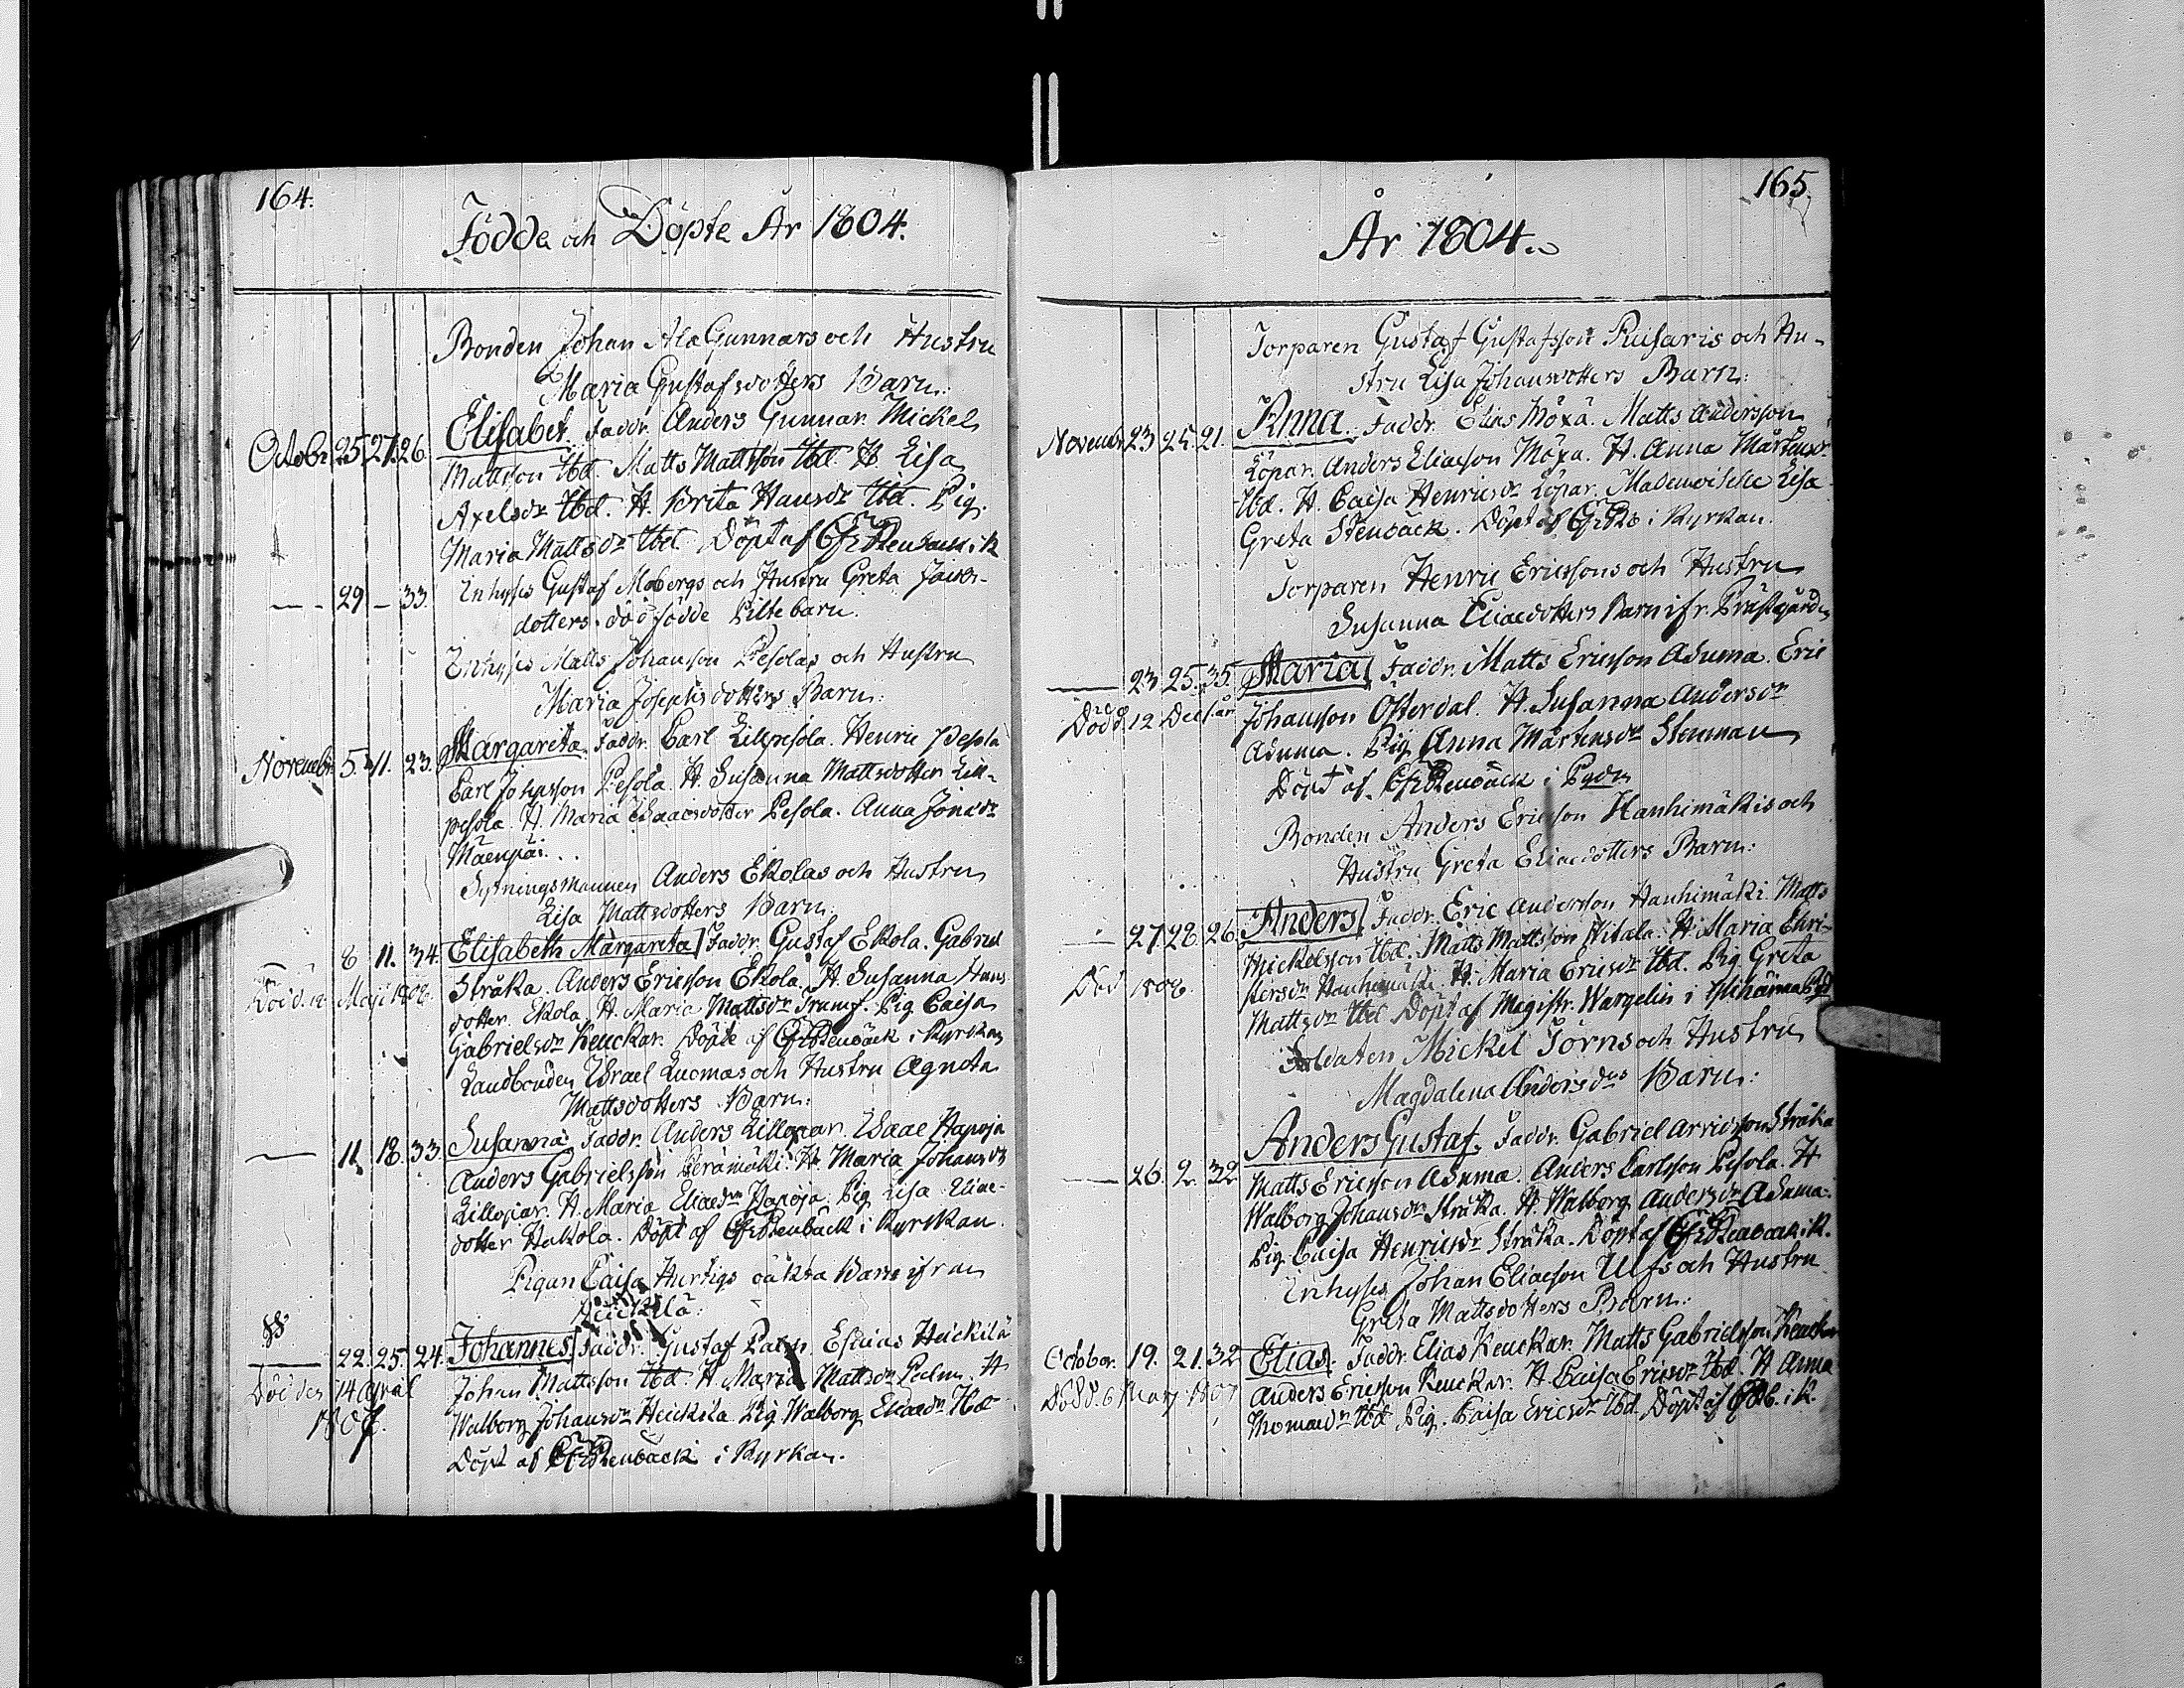 164.
Födde och Döpte År 1804.
Bonden Johan Ala Gunnars och Hustru
Maria Gustafsdotters Barn:
Octobr 25. 27. 26. Elisabet. Faddr. Anders Gunnar. Mickel
Mattsson Ibd. Matts Mattsson Ibd. H. Lisa
Axelsdr Ibd. H. Brita Hansdr Ibd. Pig.
Maria Mattsdr Ibd. Döpt af
29 — 33. Inhyses Gustaf Mobergs och Hustru Greta
dotters dödfödde Piltebarn.
Inhyses Matts Johanson Pesolas och Hustru
Maria Josephsdotters Barn:
Novembr 5. 11. 23. Margareta. Faddr. Carl Lillpesola. Henric Pesola
Carl Pesola. H. Susanna Mattsdotter Lill-
pesola. H. Maria Isaacsdotter Pesola. Anna
Mäenpäi.
Sytningsmannen Anders Ekolas och Hustru
Lisa Mattsdotters Barn:
8 11. 34. Elisabeth Margareta Faddr. Gustaf Ekola. Gabriel
Död. Maji 1808. Stråka. Anders Ericsson Ekola. H. Susanna Hans
dotter Ekola. H. Maria Mattsdr Trumf. Pig. Caisa
Gabrielsdr Keuckar. Döpte af i Kyrkan
Landbonden Israel Luomas och Hustru Agneta
Mattsdotters Barn:
11. 18. 33. Susanna Faddr. Anders Isaac Hapoja
Anders Gabrielsson Perämäki. H. Maria Johansdr
H. Maria Eliaedr Hapoja. Pig. Lisa Eliae-
dotter Hakola. Döpt af i Kyrkan.
Pigan Caisa Hurtigs oäkta Barn ifrån
Heickilä:
22. 25. 24. Johannes Faddr. Gustaf Palm. Esaias Heickilä
Död den 14 April Johan Mattsson Ibd. H. Maria Mattsdr Palm. H.
1807. Walborg Johansdr Heickila. Pig. Walborg Eliaedr Ibd.
Döpt af i Kyrkan.
165.
År 1804.
Torparen Gustaf Gustafsson Ruisaris och Hu-
stru Lisa Johansdotters Barn:
Novembr 23 25. 21. Anna. Faddr. Elias Möxä. Matts Andersson
Löpar. Anders Eliaeson Möxa. H. Anna Mårtensdr
Ibd. H. Caisa Henricsdr Löpar. Mademoiselle Lisa
Greta Stenbäck. Döpt af i Kyrkan.
Torparen Henric Ericssons och Hustru
Susanna Eliaedotters Barn ifr. Prästgården
23. 25. 35. Maria Faddr. Matts Ericsson Asuma. Eric
Död 12 Dec. s. år Johansson Österdal. H. Susanna Andersdr
Asuma. Pig. Anna Mårtensdr Stenman
Döpt af i
Bonden Anders Ericsson Hanhimäkis och
Hustru Greta Eliaedotters Barn:
27. 28. 26. Anders Faddr. Eric Andersson Hanhimäki. Matts
Mickelsson Ibd. Matts Mattsson H. Maria Chri-
Död 1808. stersdr Hanhimäki. H. Maria Ericsdr Ibd. Pig. Greta
Mattsdr Ibd Döpt af Magistr. Wargelin i
Soldaten Mickel Törns och Hustru
Magdalena Andersdrs Barn:
Anders Gustaf. Faddr. Gabriel Arvidsson Stråka
26. 2. 32 Matts Ericsson Asuma. Anders Carlsson Pesola. H.
Walborg Johansdr Stråka. H. Walborg Andersdr Asuma.
Pig. Caisa Henricsdr Stråka. Döpt af i K.
Inhyses Johan Eliaeson Ulfs och Hustru
Greta Mattsdotters Barn:
October. 19. 21. 32 Elias. Faddr. Elias Keuckar. Matts Gabrielsson Keuckar
Död d. 6 1807 Anders Ericsson Keuckar. H. Caisa Ericsdr Ibd. H. Anna
Thomaedr Ibd Pig. Caisa Ericsdr Ibd. Döpt af i K.